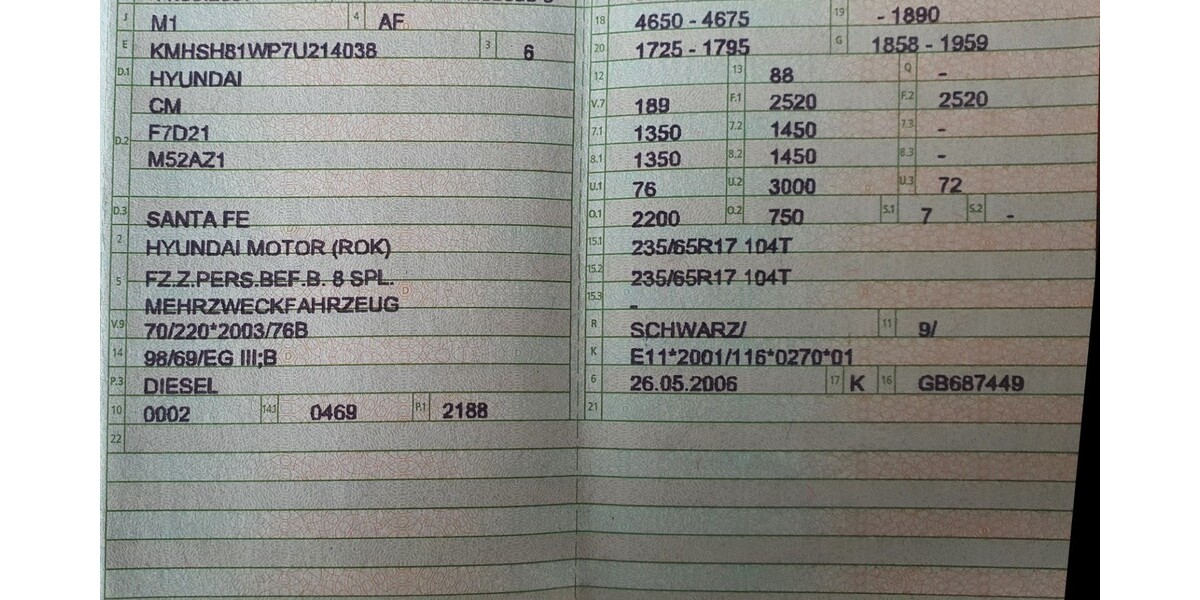 J M1 4 AF
E KMHSH81WP7U214038 3 6
D.1 HYUNDAI
CM
D.2 F7D21
M52AZ1
D.3 SANTA FE
2 HYUNDAI MOTOR (ROK)
5 FZ.Z.PERS.BEF.B. 8 SPL.
MEHRZWECKFAHRZEUG
V.9 70/220*2003/76B
14 98/69/EG III;B
P.3 DIESEL
10 0002 14.1 0469 P.1 2188
22
18 4650 - 4675 19 - 1890
20 1725 - 1795 G 1858 - 1959
12 13 88 Q -
V.7 189 F.1 2520 F.2 2520
7.1 1350 7.2 1450 7.3 -
8.1 1350 8.2 1450 8.3 -
U.1 76 U.2 3000 U.3 72
O.1 2200 O.2 750 S.1 7 S.2 -
15.1 235/65R17 104T
15.2 235/65R17 104T
15.3 -
R SCHWARZ/ 11 9/
K E11*2001/116*0270*01
6 26.05.2006 17 K 16 GB687449
21